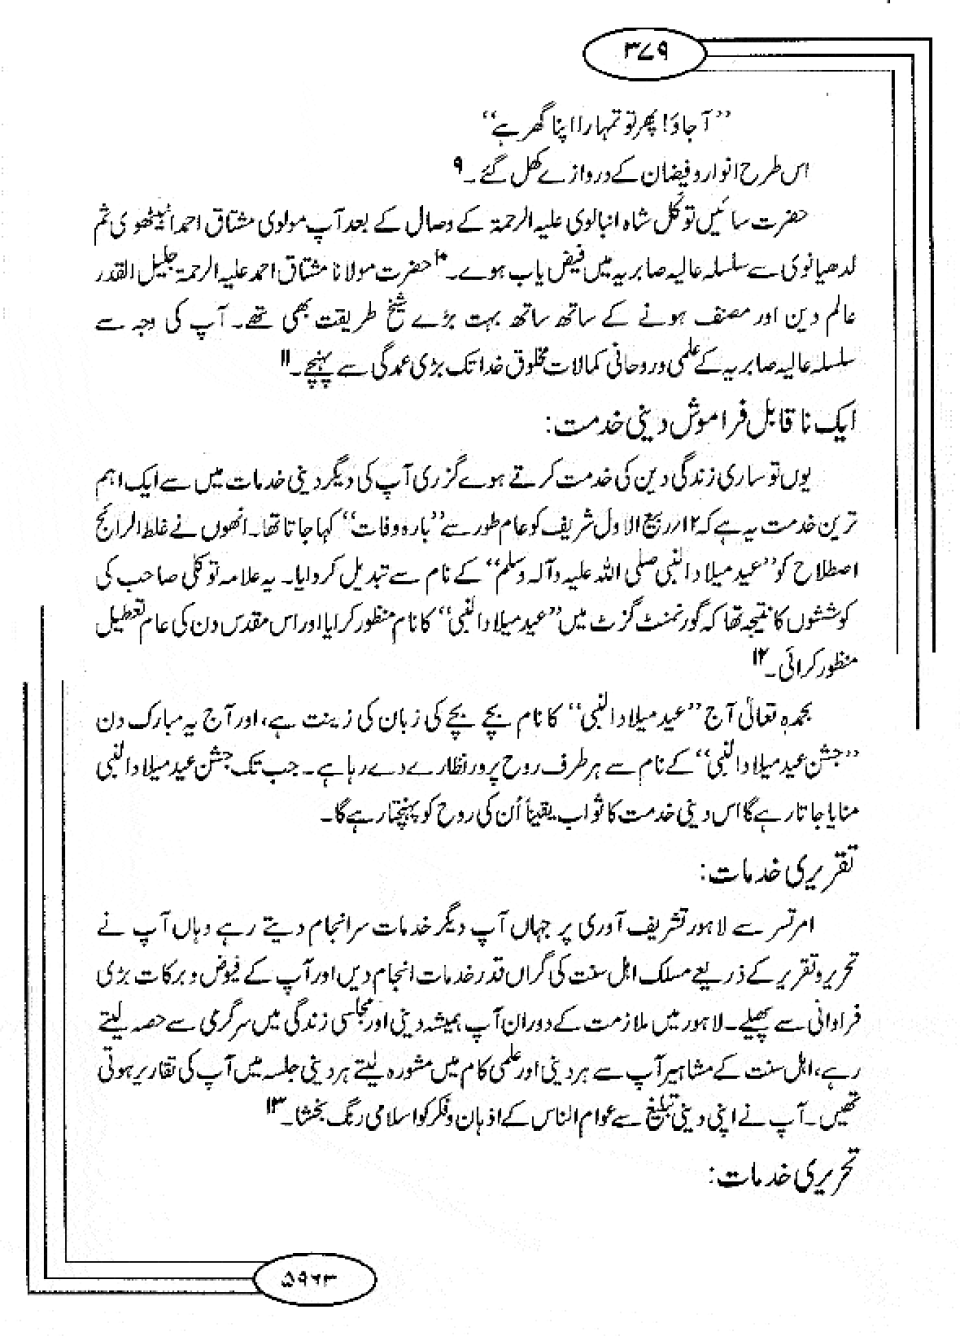 ۳۷۹
”آ جاؤ! پھر تو تمہارا اپنا گھر ہے“
اس طرح انوار و فیضان کے دروازے کھل گئے۔۹
حضرت سائیں توکل شاہ انبالوی علیہ الرحمۃ کے وصال کے بعد آپ مولوی مشتاق احمد انبیٹھوی ثم
لدھیانوی سے سلسلہ عالیہ صابریہ میں فیض یاب ہوے۔۱۰ حضرت مولانا مشتاق احمد علیہ الرحمۃ جلیل القدر
عالم دین اور مصنف ہونے کے ساتھ ساتھ بہت بڑے شیخ طریقت بھی تھے۔ آپ کی وجہ سے
سلسلہ عالیہ صابریہ کے علمی و روحانی کمالات مخلوق خدا تک بڑی عمدگی سے پہنچے۔۱۱
ایک ناقابل فراموش دینی خدمت:
یوں تو ساری زندگی دین کی خدمت کرتے ہوے گزری آپ کی دیگر دینی خدمات میں سے ایک اہم
ترین خدمت یہ ہے کہ ۱۲؍ ربیع الاول شریف کو عام طور سے ”بارہ وفات“ کہا جاتا تھا۔ انھوں نے غلط الرائج
اصطلاح کو ”عید میلاد النبی صلی اللہ علیہ وآلہ وسلم“ کے نام سے تبدیل کروایا۔ یہ علامہ توکلی صاحب کی
کوششوں کا نتیجہ تھا کہ گورنمنٹ گزٹ میں ”عید میلاد النبی“ کا نام منظور کرایا اور اس مقدس دن کی عام تعطیل
منظور کرائی۔۱۲
بحمدہٖ تعالیٰ آج ”عید میلاد النبی“ کا نام بچے بچے کی زبان کی زینت ہے، اور آج یہ مبارک دن
”جشن عید میلاد النبی“ کے نام سے ہر طرف روح پرور نظارے دے رہا ہے۔ جب تک جشن عید میلاد النبی
منایا جاتا رہے گا اس دینی خدمت کا ثواب یقیناً اُن کی روح کو پہنچتا رہے گا۔
تقریری خدمات:
امرتسر سے لاہور تشریف آوری پر جہاں آپ دیگر خدمات سرانجام دیتے رہے وہاں آپ نے
تحریر و تقریر کے ذریعے مسلک اہل سنت کی گراں قدر خدمات انجام دیں اور آپ کے فیوض و برکات بڑی
فراوانی سے پھیلے۔ لاہور میں ملازمت کے دوران آپ ہمیشہ دینی اور مجلسی زندگی میں سرگرمی سے حصہ لیتے
رہے، اہل سنت کے مشاہیر آپ سے ہر دینی اور علمی کام میں مشورہ لیتے ہر دینی جلسہ میں آپ کی تقاریر ہوتی
تھیں۔ آپ نے اپنی دینی تبلیغ سے عوام الناس کے اذہان و فکر کو اسلامی رنگ بخشا۔۱۳
تحریری خدمات:
۵۹۶۳